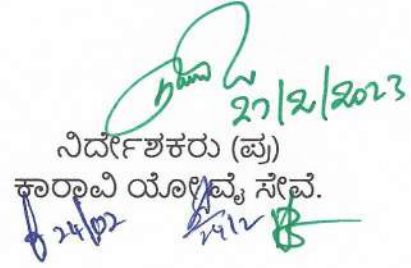 27/2/2023
ನಿರ್ದೇಶಕರು (ಪ್ರ)
ಕಾರಾವಿ ಯೋಜವೈ ಸೇವೆ.
24/02 24/2